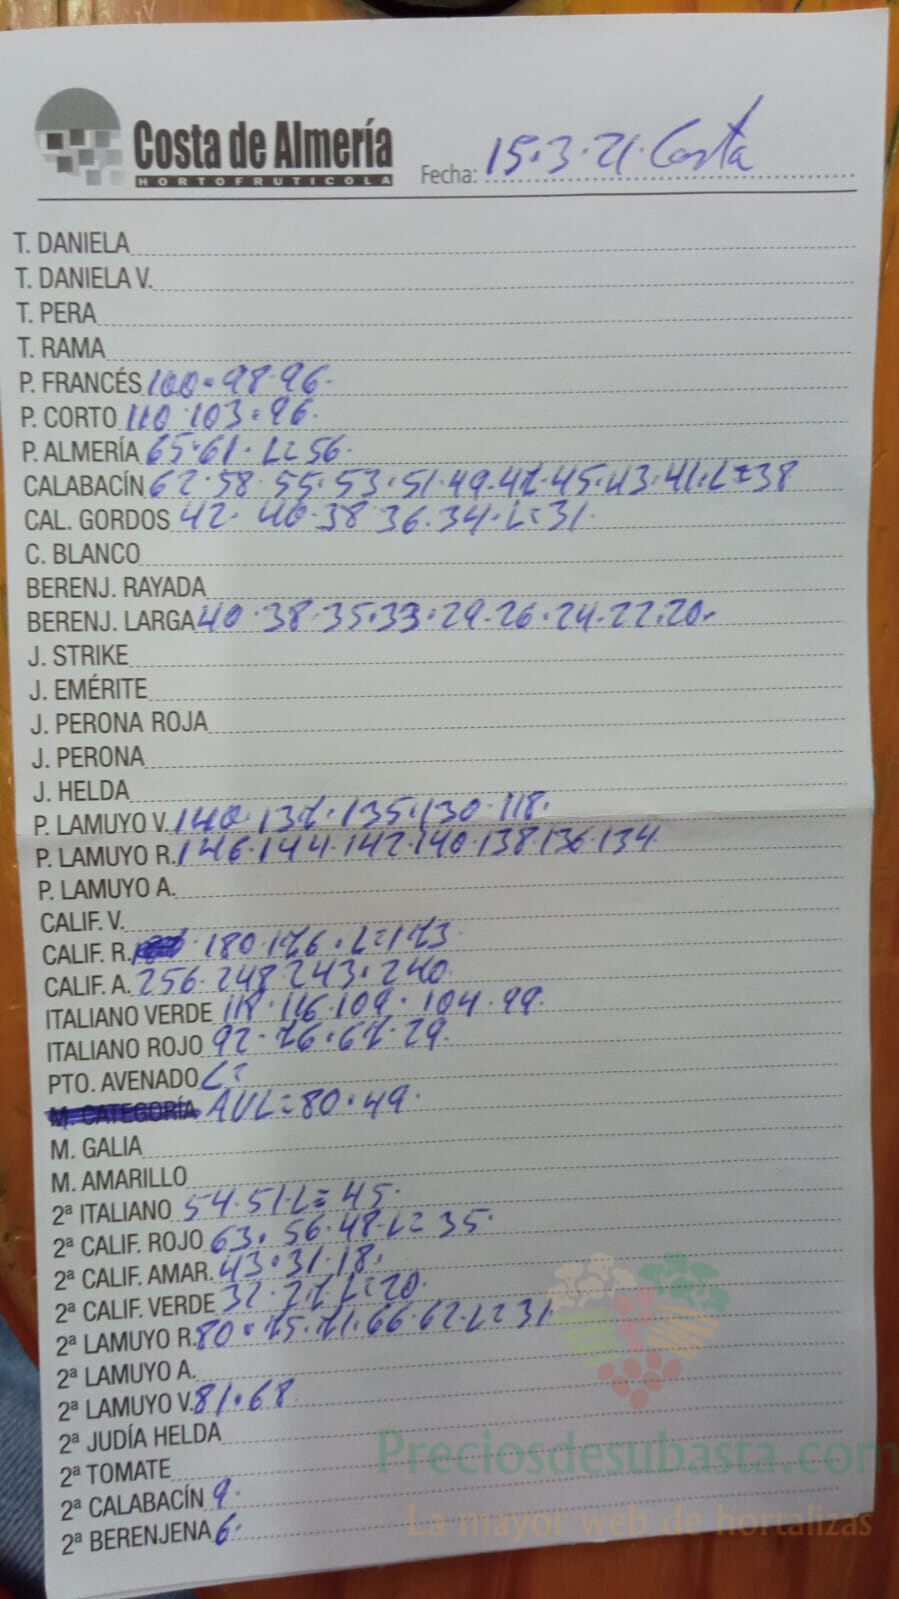 Costa de Almería
HORTOFRUTICOLA
Fecha: 15.3.21. Costa
T. DANIELA
T. DANIELA V.
T. PERA
T. RAMA
P. FRANCÉS 100 = 98.96.
P. CORTO 110.103 = 96.
P. ALMERÍA 65.61. L=56.
CALABACÍN 62.58.55.53.51.49.47.45.43.41.L=38
CAL. GORDOS 42.40.38 36.34.L=31.
C. BLANCO
BERENJ. RAYADA
BERENJ. LARGA 40.38.35.33.29.26.24.22.20.
J. STRIKE
J. EMÉRITE
J. PERONA ROJA
J. PERONA
J. HELDA
P. LAMUYO V. 140.137.135.130.118.
P. LAMUYO R. 146.144.142.140.138.136.134.
P. LAMUYO A.
CALIF. V.
CALIF. R. 180.176.L=173.
CALIF. A. 256.248.243.240.
ITALIANO VERDE 118.116.109.104.99.
ITALIANO ROJO 92.76.67.29.
PTO. AVENADO L=
M. CATEGORÍA AVL=80.49.
M. GALIA
M. AMARILLO
2ª ITALIANO 54.51.L=45.
2ª CALIF. ROJO 63.56.48.L=35.
2ª CALIF. AMAR. 43.31.18.
2ª CALIF. VERDE 32.27.L=20.
2ª LAMUYO R. 80=75.71.66.62.L=31
2ª LAMUYO A.
2ª LAMUYO V. 81.68
2ª JUDÍA HELDA
2ª TOMATE
2ª CALABACÍN 9.
2ª BERENJENA 6.
Preciosdesubasta.com
La mayor web de hortalizas